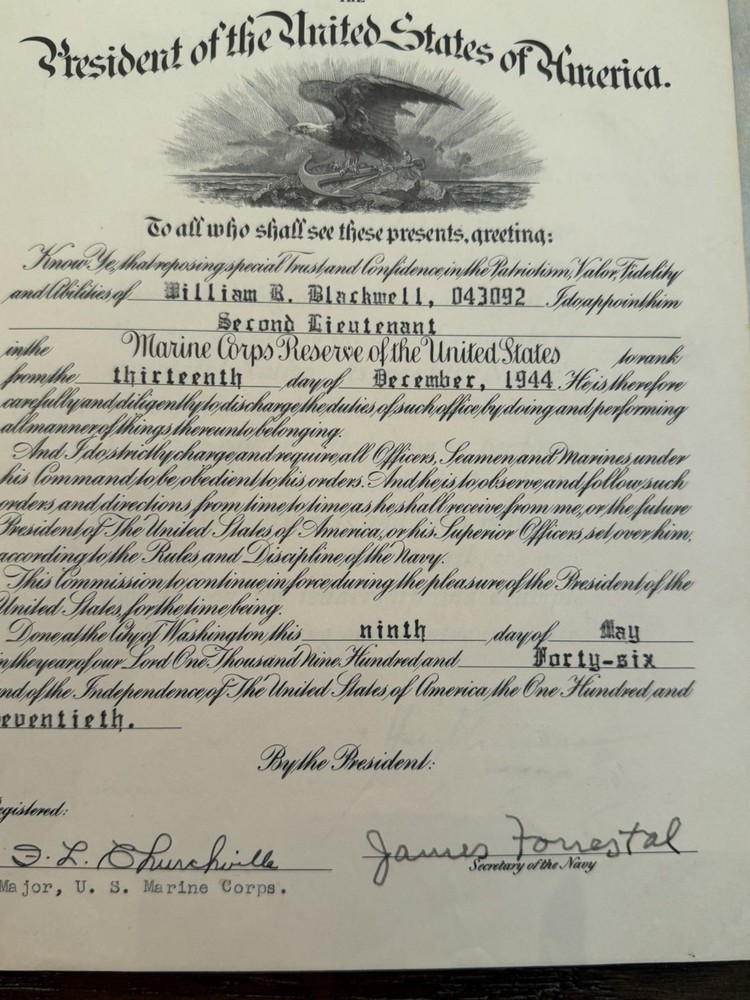 THE
President of the United States of America.
To all who shall see these presents, greeting:
Know Ye, that reposing special Trust and Confidence in the Patriotism, Valor, Fidelity
and Abilities of William R. Blackwell, 043092 I do appoint him
Second Lieutenant
in the Marine Corps Reserve of the United States to rank
from the thirteenth day of December, 1944. He is therefore
carefully and diligently to discharge the duties of such office by doing and performing
all manner of things thereunto belonging.
And I do strictly charge and require all Officers, Seamen and Marines under
his Command to be obedient to his orders. And he is to observe and follow such
orders, and directions from time to time as he shall receive from me, or the future
President of The United States of America, or his Superior Officers set over him,
according to the Rules and Discipline of the Navy.
This Commission to continue in force during the pleasure of the President of the
United States, for the time being.
Done at the City of Washington this ninth day of May
in the year of our Lord One Thousand Nine Hundred and Forty-six
and of the Independence of The United States of America the One Hundred and
eventieth.
By the President:
egistered:
J. L. Churchville James Forrestal
Major, U. S. Marine Corps. Secretary of the Navy